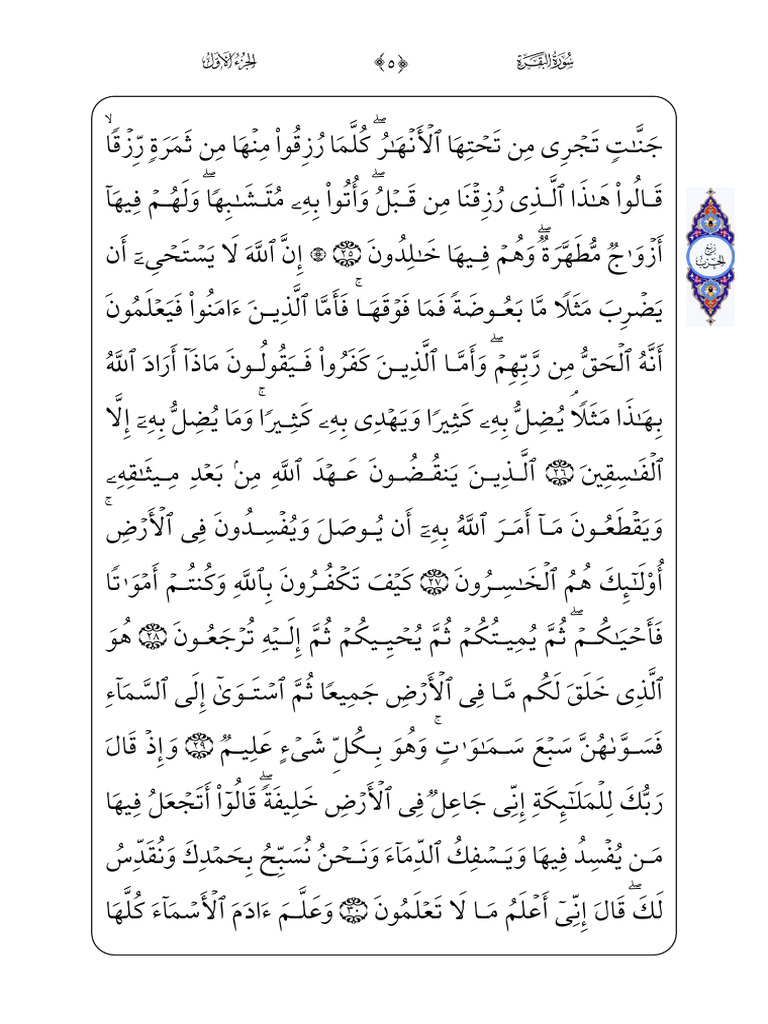 سُورَةُ البَقَرَة ﴿٥﴾ الجُزءُ الأوّل
جَنَّٰتٖ تَجۡرِي مِن تَحۡتِهَا ٱلۡأَنۡهَٰرُۖ كُلَّمَا رُزِقُواْ مِنۡهَا مِن ثَمَرَةٖ رِّزۡقٗاۙ
قَالُواْ هَٰذَا ٱلَّذِي رُزِقۡنَا مِن قَبۡلُۖ وَأُتُواْ بِهِۦ مُتَشَٰبِهٗاۖ وَلَهُمۡ فِيهَآ
أَزۡوَٰجٞ مُّطَهَّرَةٞۖ وَهُمۡ فِيهَا خَٰلِدُونَ ٢٥ ۞ إِنَّ ٱللَّهَ لَا يَسۡتَحۡيِۦٓ أَن
رُبْعُ الحِزْب
يَضۡرِبَ مَثَلٗا مَّا بَعُوضَةٗ فَمَا فَوۡقَهَاۚ فَأَمَّا ٱلَّذِينَ ءَامَنُواْ فَيَعۡلَمُونَ
أَنَّهُ ٱلۡحَقُّ مِن رَّبِّهِمۡۖ وَأَمَّا ٱلَّذِينَ كَفَرُواْ فَيَقُولُونَ مَاذَآ أَرَادَ ٱللَّهُ
بِهَٰذَا مَثَلٗاۘ يُضِلُّ بِهِۦ كَثِيرٗا وَيَهۡدِي بِهِۦ كَثِيرٗاۚ وَمَا يُضِلُّ بِهِۦٓ إِلَّا
ٱلۡفَٰسِقِينَ ٢٦ ٱلَّذِينَ يَنقُضُونَ عَهۡدَ ٱللَّهِ مِنۢ بَعۡدِ مِيثَٰقِهِۦ
وَيَقۡطَعُونَ مَآ أَمَرَ ٱللَّهُ بِهِۦٓ أَن يُوصَلَ وَيُفۡسِدُونَ فِي ٱلۡأَرۡضِۚ
أُوْلَٰٓئِكَ هُمُ ٱلۡخَٰسِرُونَ ٢٧ كَيۡفَ تَكۡفُرُونَ بِٱللَّهِ وَكُنتُمۡ أَمۡوَٰتٗا
فَأَحۡيَٰكُمۡۖ ثُمَّ يُمِيتُكُمۡ ثُمَّ يُحۡيِيكُمۡ ثُمَّ إِلَيۡهِ تُرۡجَعُونَ ٢٨ هُوَ
ٱلَّذِي خَلَقَ لَكُم مَّا فِي ٱلۡأَرۡضِ جَمِيعٗا ثُمَّ ٱسۡتَوَىٰٓ إِلَى ٱلسَّمَآءِ
فَسَوَّىٰهُنَّ سَبۡعَ سَمَٰوَٰتٖۚ وَهُوَ بِكُلِّ شَيۡءٍ عَلِيمٞ ٢٩ وَإِذۡ قَالَ
رَبُّكَ لِلۡمَلَٰٓئِكَةِ إِنِّي جَاعِلٞ فِي ٱلۡأَرۡضِ خَلِيفَةٗۖ قَالُوٓاْ أَتَجۡعَلُ فِيهَا
مَن يُفۡسِدُ فِيهَا وَيَسۡفِكُ ٱلدِّمَآءَ وَنَحۡنُ نُسَبِّحُ بِحَمۡدِكَ وَنُقَدِّسُ
لَكَۖ قَالَ إِنِّيٓ أَعۡلَمُ مَا لَا تَعۡلَمُونَ ٣٠ وَعَلَّمَ ءَادَمَ ٱلۡأَسۡمَآءَ كُلَّهَا